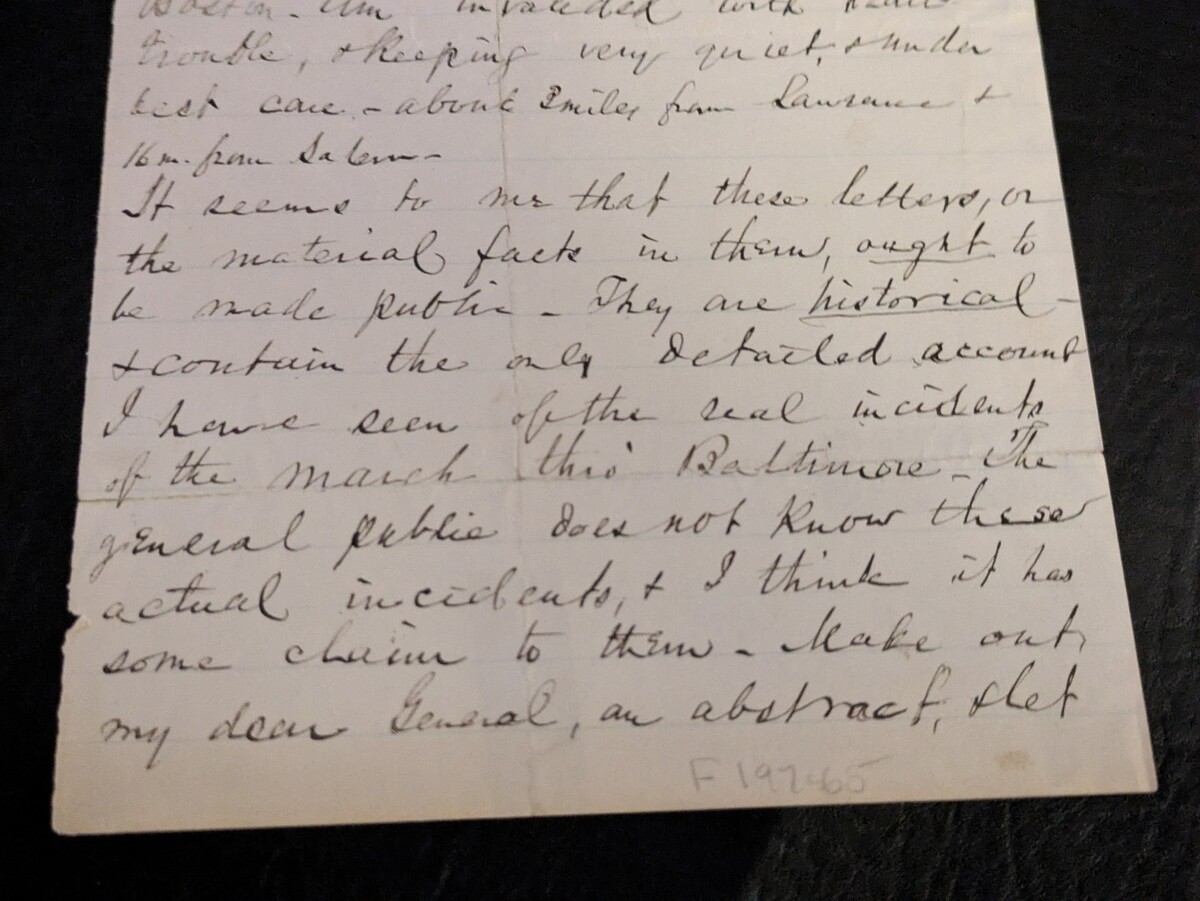 Boston. Am invalided with heart
trouble, & keeping very quiet, & under
best care - about 3 miles from Lawrence &
16 m. from Salem -
It seems to me that these letters, or
the material facts in them, ought to
be made public - They are historical -
& contain the only detailed account
I have seen of the real incidents
of the march thro' Baltimore - The
general public does not know these
actual incidents, & I think it has
some claim to them - Make out,
my dear General, an abstract, & let